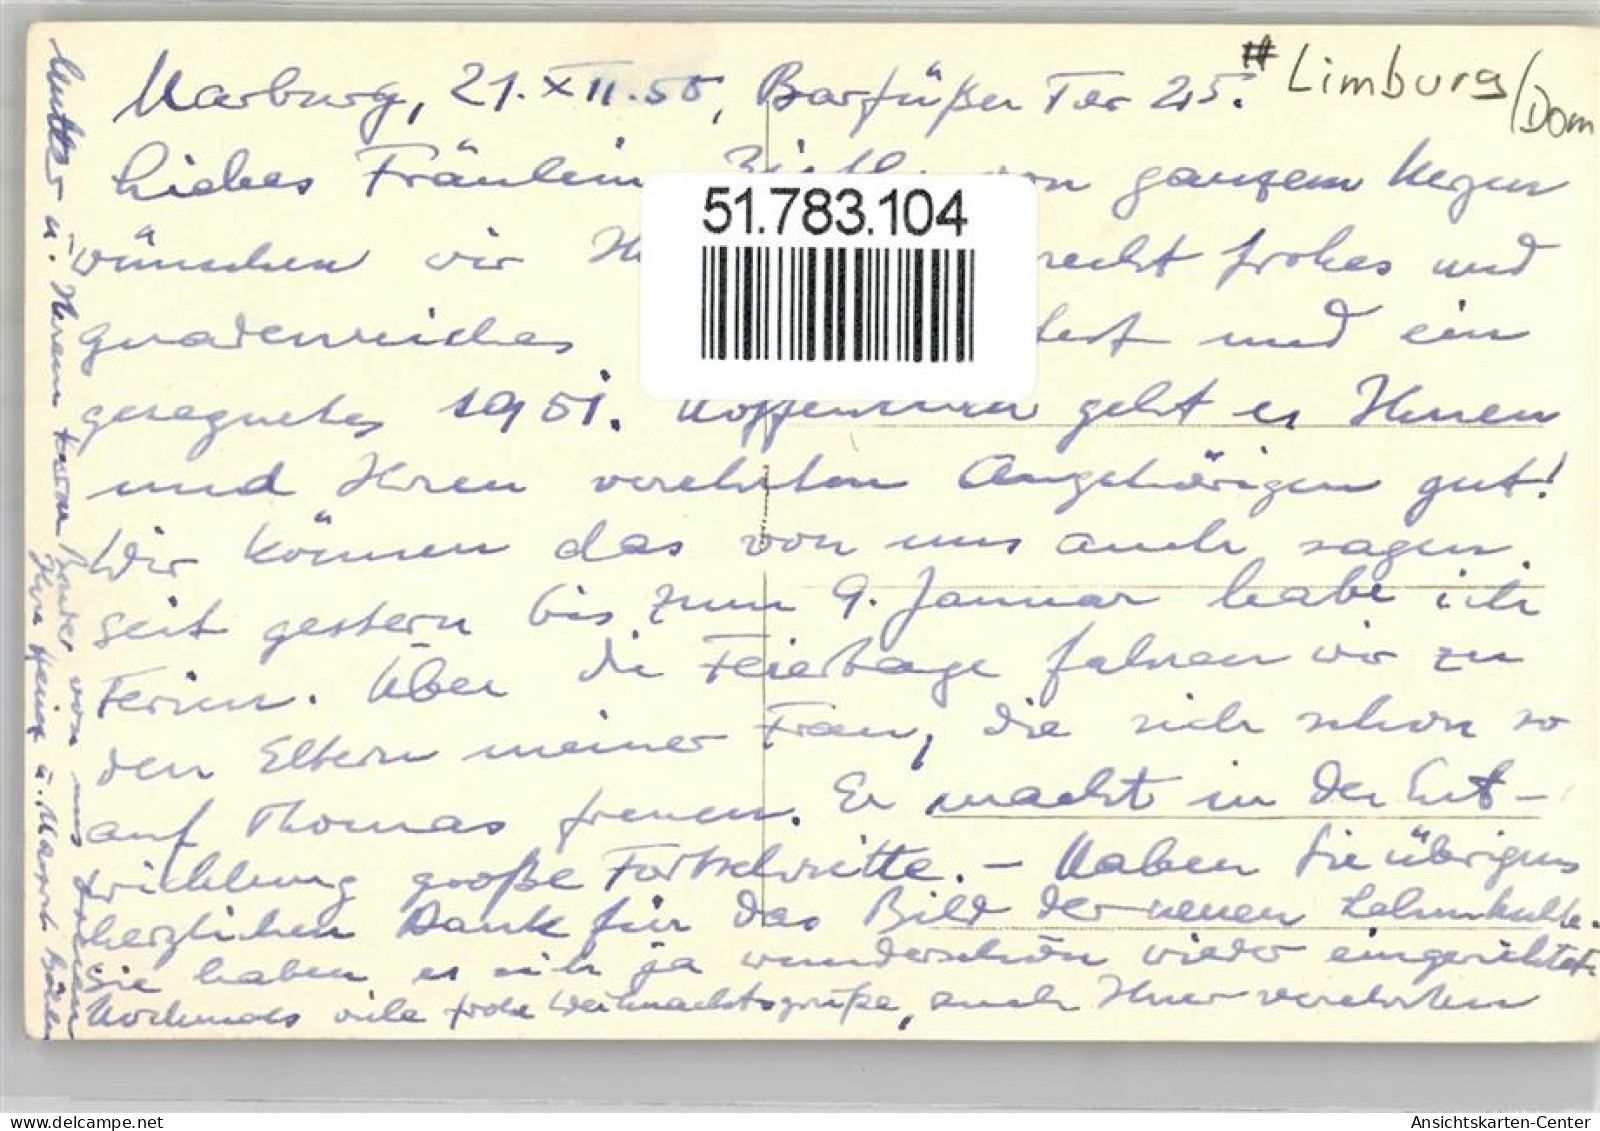 Marburg, 21. XII. 50, Barfüßer Tor 25.
# Limburg/Dom
Liebes Fräulein von ganzem Herzen
51.783.104
wünschen wir recht frohes und
gnadenreiches und ein
gesegnetes 1951. Hoffentlich geht es Ihnen
und Ihren verehrten Angehörigen gut!
Wir können das von uns auch sagen.
Seit gestern bis zum 9. Januar habe ich
Ferien. Über die Feiertage fahren wir zu
den Eltern meiner Frau, die sich schon so
auf Thomas freuen. Er macht in der Ent-
wicklung große Fortschritte. – Haben Sie übrigens
herzlichen Dank für das Bild der neuen
Sie haben es sich ja wunderschön wieder eingerichtet.
Nochmals viele frohe Weihnachtsgrüße, auch Ihrer verehrten
Mutter u. Ihrem Herrn Bruder von uns dreien
Ihre Heinz u. Margret
Ansichtskarten-Center